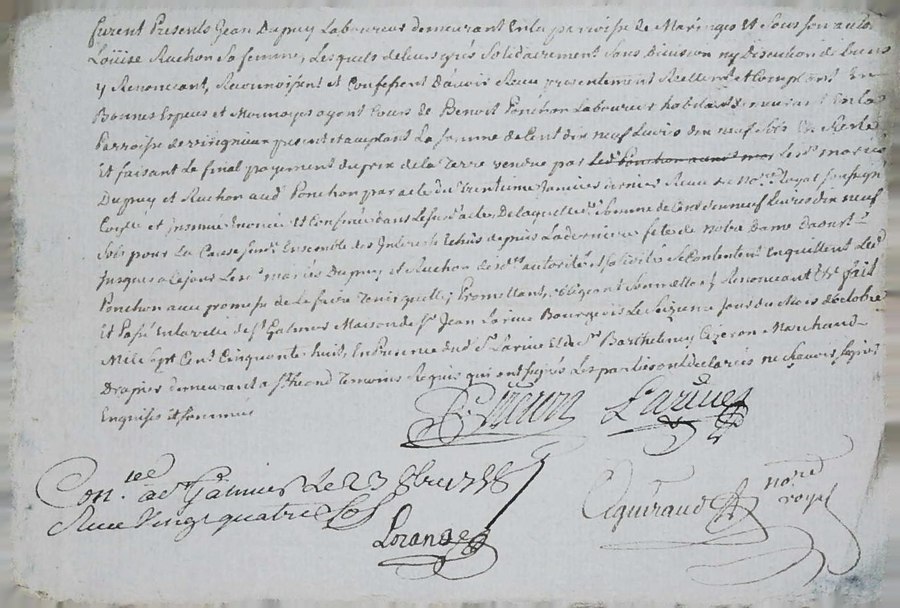 furent Presents Jean Dupuy Laboureur demeurant En la parroisse de Maringes Et sous son auto
Loüise Ruchon Sa femme, Lesquels de leurs grés Solidairement Sans Division ny Discution de biens
y Renoncant, Reconnoissent et Confessent D'avoir Receu presentement Reellem.t et Comptant En
Bonnes Especes et Monnoyes ayant Cours de Benoit Ponchon Laboureur habitant demeurant En la
Parroisse de present et acceptant La Somme de Cent dix neuf Livres dix neuf Sols En Reste
et faisant Le final payement du prix de la Terre vendue par Les d. mariés
Dupuy et Ruchon aud. Ponchon par acte du trentieme Janvier dernier Receu Le no.re Royal soussigné
Controllé et Insinué Enoncé et dans Led. acte, De laquelle d. Somme de Cent dix neuf Livres dix neuf
Sols pour La Cause Ensemble des Interets Echus depuis La derniere fete de Notre Dame Daoust
Jusques a ce jour Les d. mariés Dupuy et Ruchon de d. autorité et Solidité Se Contentent En quittent Led.
Ponchon avec promesse de Le faire Tenir quitte; Promettant, obligeant Soumettant Renoncant &c fait
Et Passé En la ville de S.t Galmier Maison de S.r Jean Larive Bourgeois Le Seizieme Jour du Mois d'octobre
Mile Sept Cent Cinquante huit, En Presence dud. S.r Larive Et de S.r Barthelemy Cizeron Marchand
Drapier demeurant a Temoins Requis qui ont signés Les parties ont Declarés ne Scavoir signer
Enquises et Sommées
Larive
Con.lée a S.t Galmier Le 23 8bre 1758
Receu Vingt quatre Sols
Lorange
no.re
royal